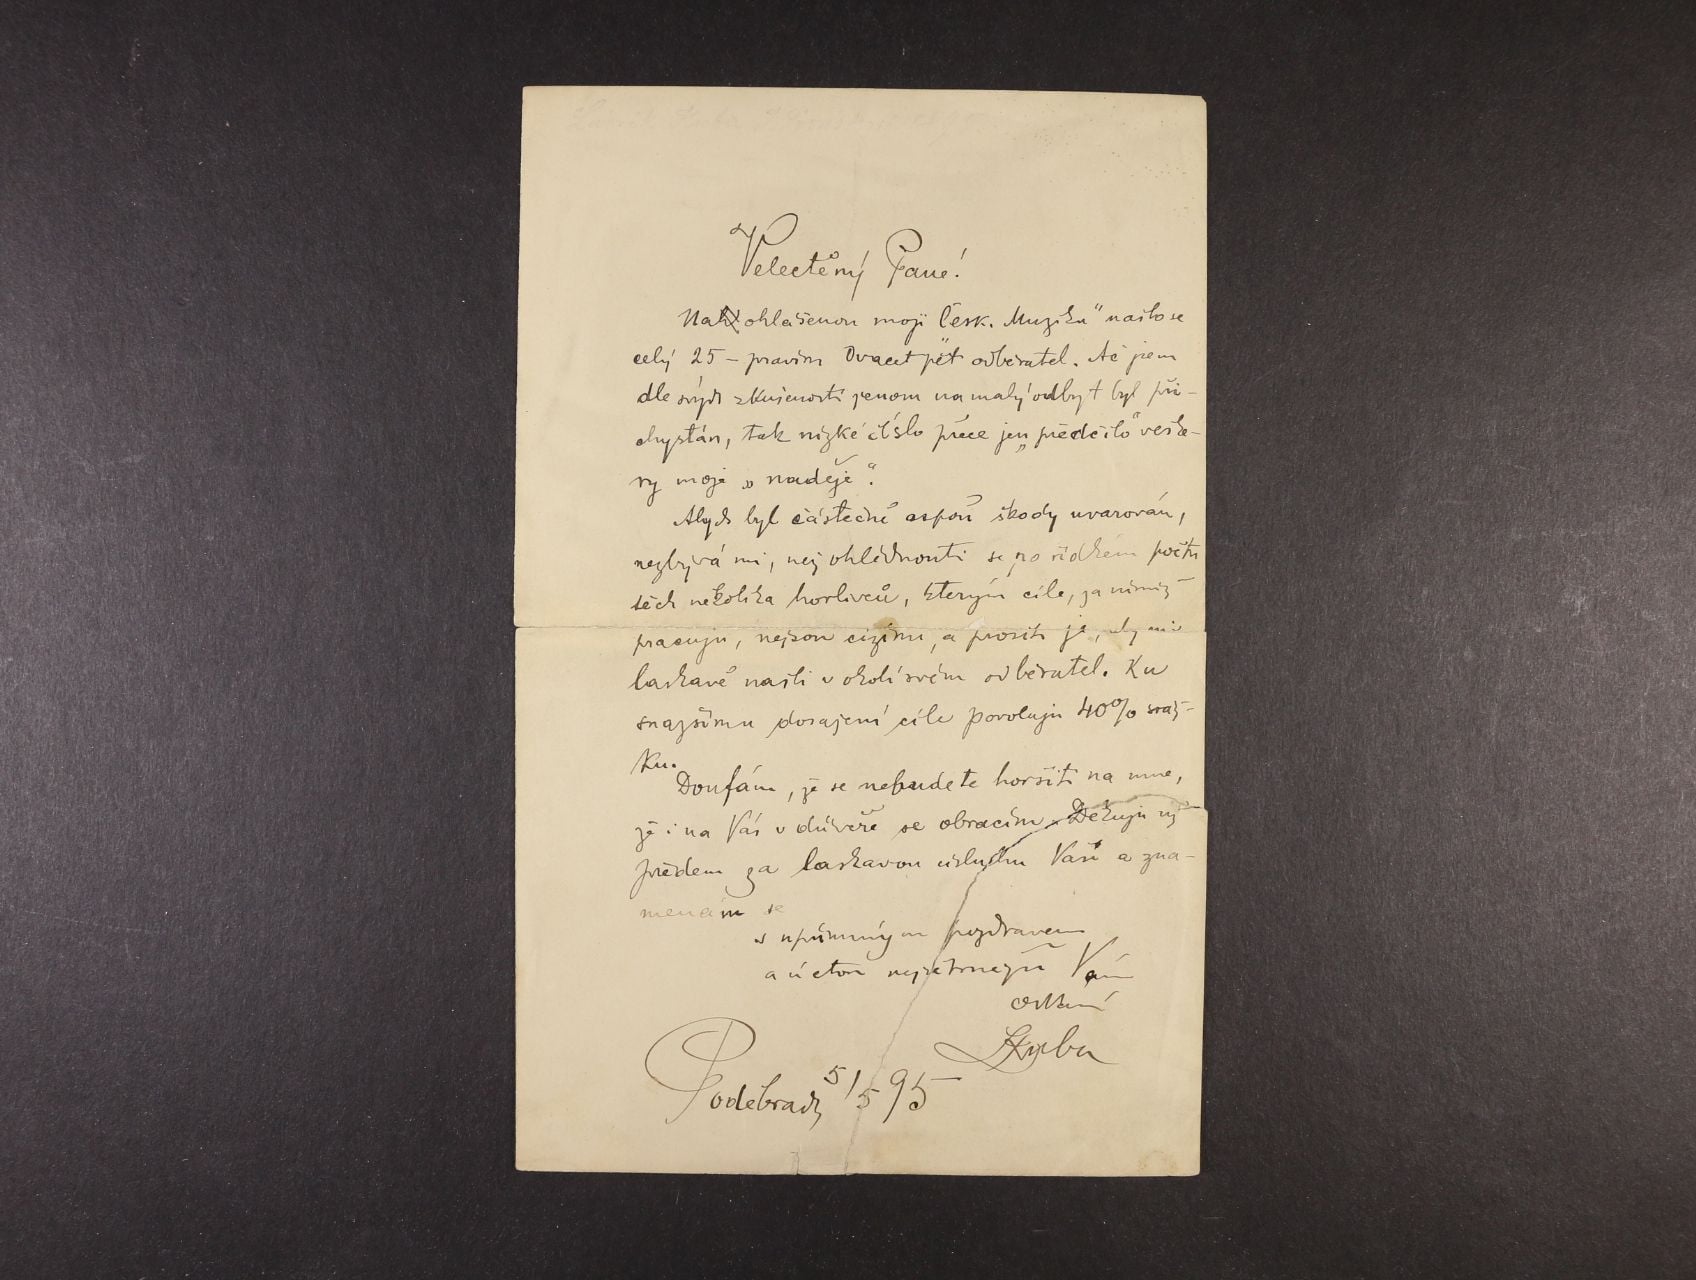 Velectěný Pane!
Na ohlášenou moji Česk. Muziku" našlo se
celý 25 – pravím Dvacet pět odběratel. Ač jsem
dle svých zkušeností jenom na malý odbyt byl při-
chystán, tak nízké číslo přece jen „předčilo" veške-
ry moje „naděje".
Abych byl částečně aspoň škody uvarován,
nezbývá mi, než ohlédnouti se po řídkém počtu
těch několika horlivců, kterým cíle, za nimiž
pracuju, nejsou cizími, a prositi je, aby mi
laskavě našli v okolí svém odběratel. Ku
snazšímu dosažení cíle povoluju 40% sráž-
ku.
Doufám, že se nebudete horšiti na mne,
že i na Vás v důvěře se obracím. Děkuju již
předem za laskavou úsluhu Vaši a zna-
menám se
s upřímným pozdravem
a úctou Vám
oddaný
LKuba
Poděbrady 5/5 95